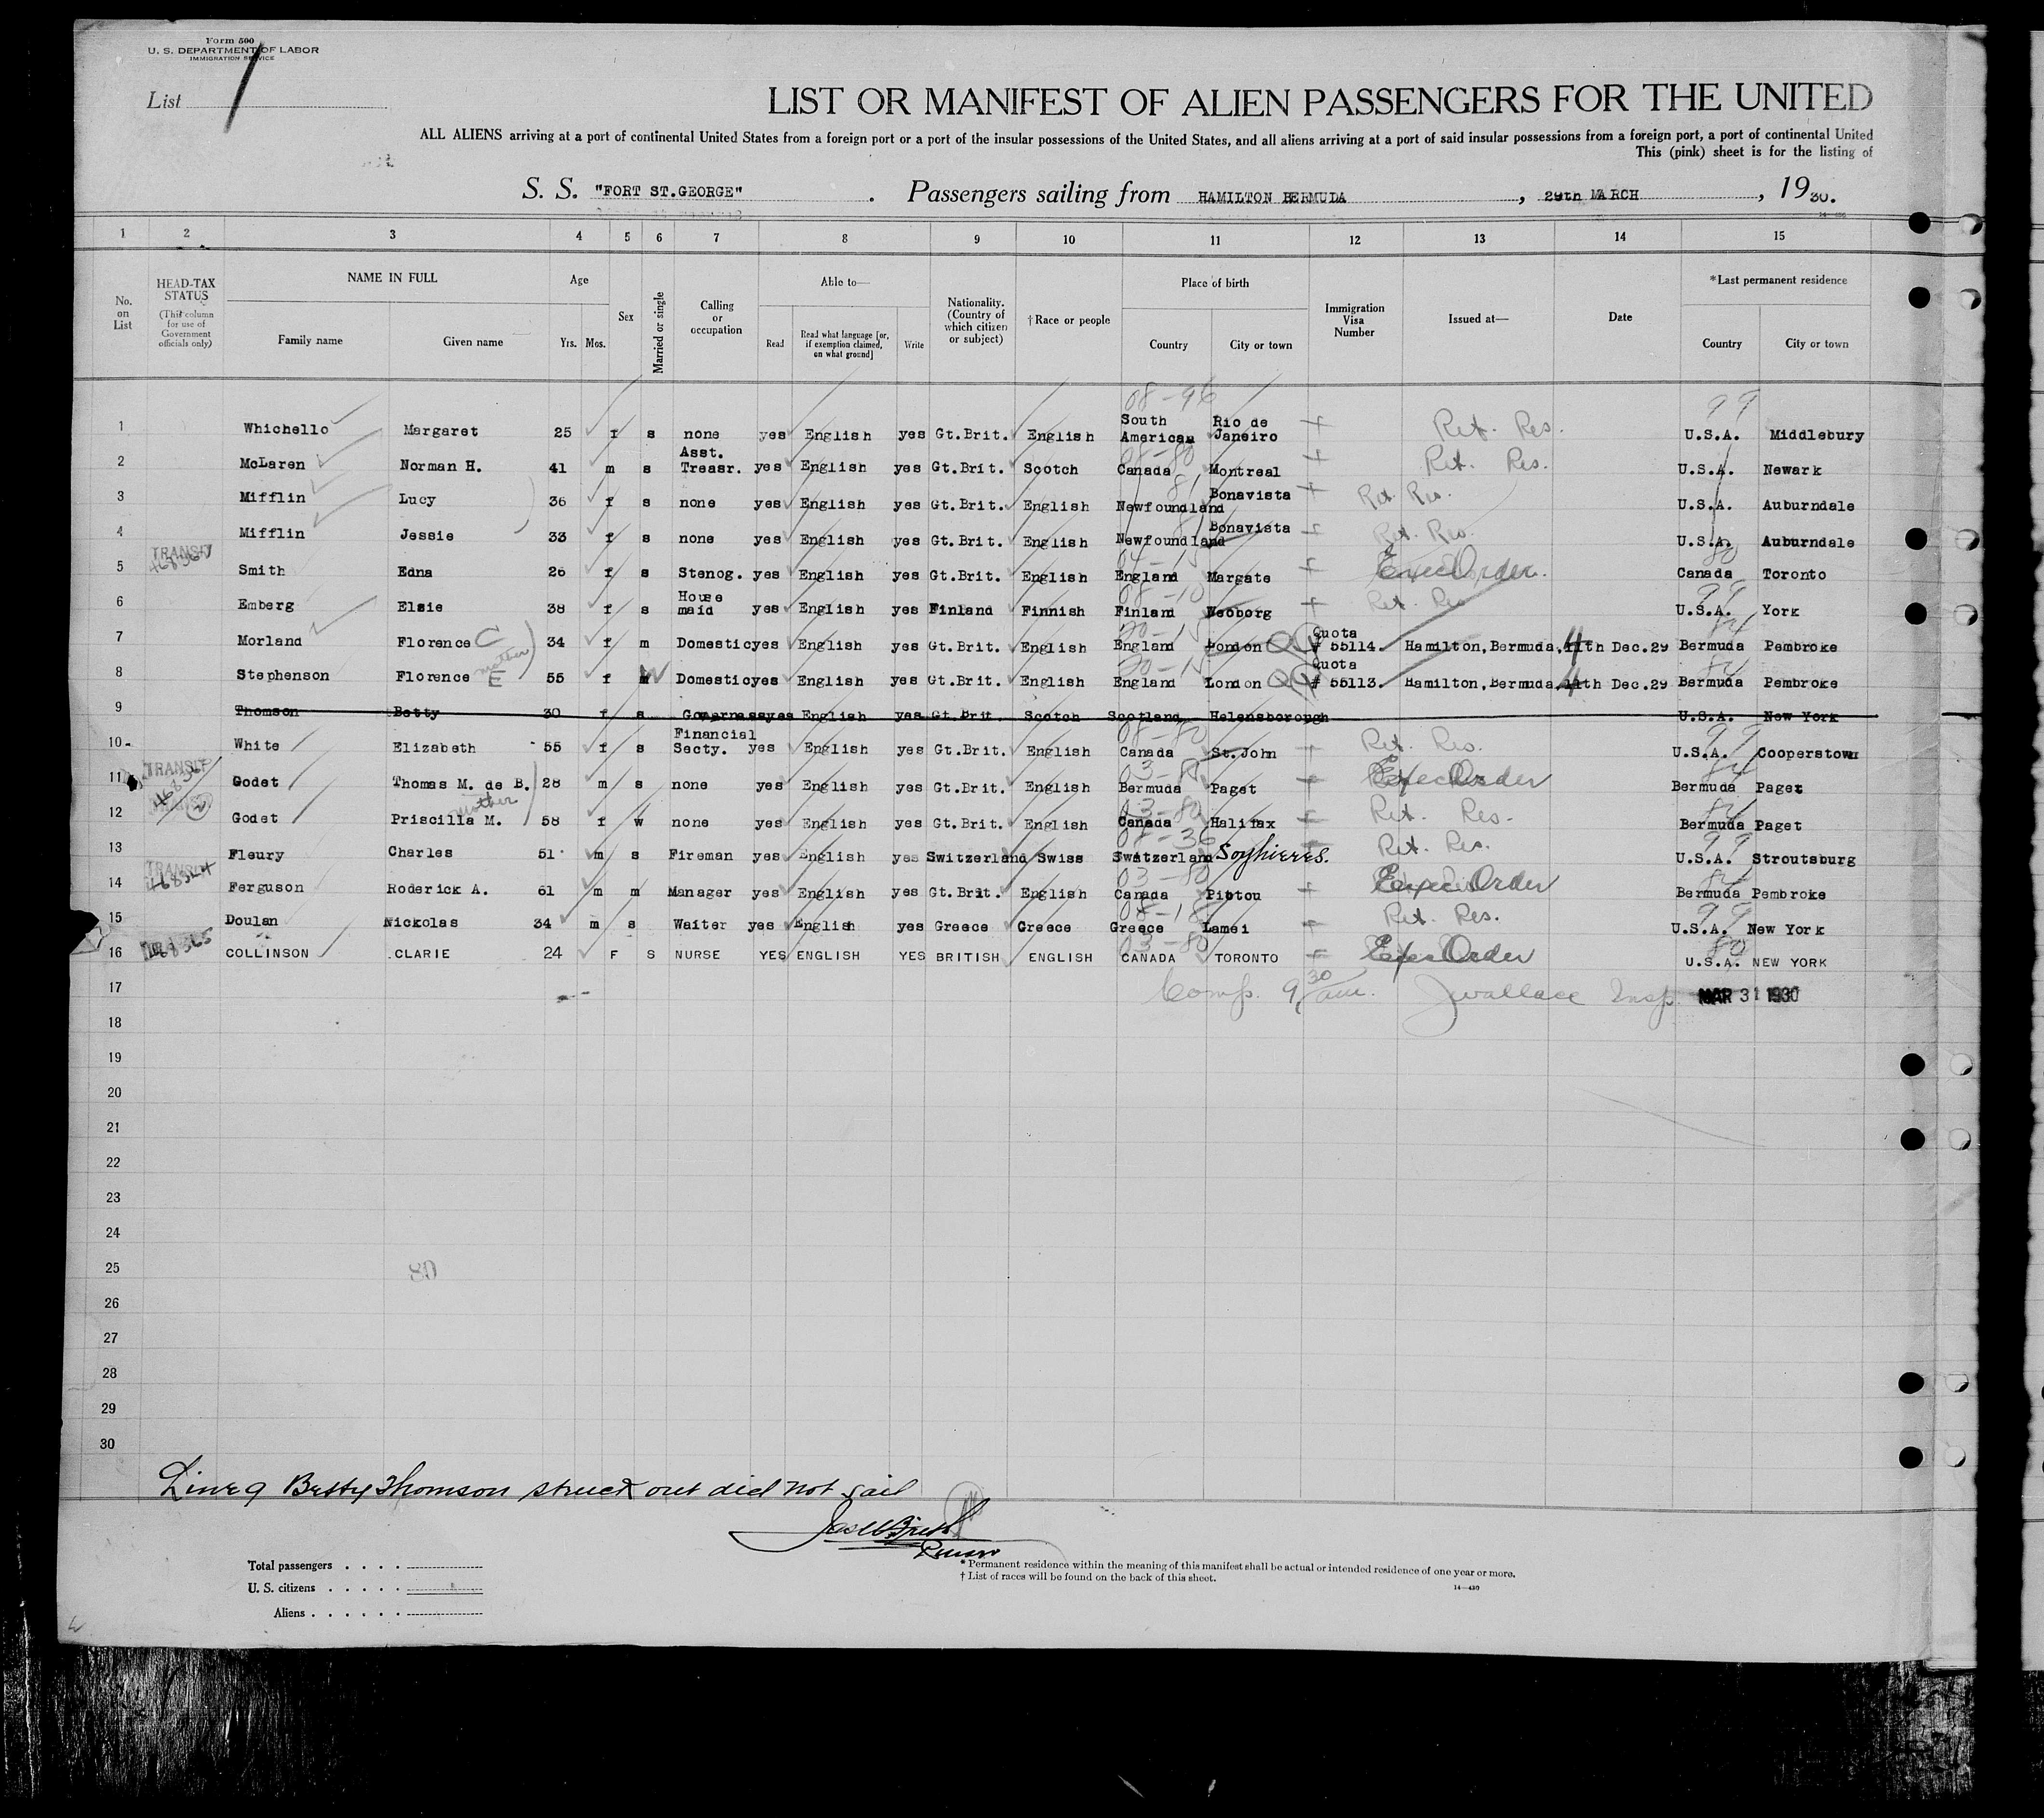 Form 500
U. S. DEPARTMENT OF LABOR
IMMIGRATION SERVICE
List 1
LIST OR MANIFEST OF ALIEN PASSENGERS FOR THE UNITED
ALL ALIENS arriving at a port of continental United States from a foreign port or a port of the insular possessions of the United States, and all aliens arriving at a port of said insular possessions from a foreign port, a port of continental United
This (pink) sheet is for the listing of
S. S. "FORT ST.GEORGE" . Passengers sailing from HAMILTON BERMUDA , 29th MARCH , 19 30.
1 2 3 4 5 6 7 8 9 10 11 12 13 14 15
No. on List
HEAD-TAX STATUS (This column for use of Government officials only)
NAME IN FULL Family name Given name
Age Yrs. Mos.
Sex
Married or single
Calling or occupation
Able to— Read Read what language [or, if exemption claimed, on what ground] Write
Nationality. (Country of which citizen or subject)
†Race or people
Place of birth Country City or town
Immigration Visa Number
Issued at—
Date
*Last permanent residence Country City or town
1 Whichello Margaret 25 f s none yes English yes Gt.Brit. English 08-96 South American Rio de Janeiro Ret. Res. 99 U.S.A. Middlebury
2 McLaren Norman H. 41 m s Asst. Treasr. yes English yes Gt.Brit. Scotch Canada Montreal Ret. Res. U.S.A. Newark
3 Mifflin Lucy 36 f s none yes English yes Gt.Brit. English 81 Newfoundland Bonavista Ret. Res. U.S.A. Auburndale
4 Mifflin Jessie 33 f s none yes English yes Gt.Brit. English Newfoundland Bonavista Ret. Res. U.S.A. Auburndale
5 TRANSIT Smith Edna 26 f s Stenog. yes English yes Gt.Brit. English England Margate Exec Order. 80 Canada Toronto
6 Emberg Elsie 38 f s House maid yes English yes Finland Finnish 08-10 Finland Ret. Res U.S.A. York
7 Morland Florence C 34 f m Domestic yes English yes Gt.Brit. English England London Quota # 55114. Hamilton, Bermuda, 4 th Dec.29 84 Bermuda Pembroke
8 Stephenson Florence mother E 55 f W Domestic yes English yes Gt.Brit. English England London Quota # 55113. Hamilton, Bermuda 4 th Dec.29 84 Bermuda Pembroke
9 Thomson Betty 30 f s Governess yes English yes Gt.Brit. Scotch Scotland Helensborough U.S.A. New York
10 White Elizabeth 55 f s Financial Secty. yes English yes Gt.Brit. English 08-80 Canada St.John Ret. Res. 99 U.S.A. Cooperstown
11 TRANSIT Godet Thomas M. de B. 28 m s none yes English yes Gt.Brit. English Bermuda Paget Exec Order 84 Bermuda Paget
12 Godet mother Priscilla M. 58 f w none yes English yes Gt.Brit. English 03-80 Canada Halifax Ret. Res. 84 Bermuda Paget
13 Fleury Charles 51 m s Fireman yes English yes Switzerland Swiss 08-36 Switzerland Soyhieres. Ret. Res. 99 U.S.A. Stroutsburg
14 TRANSIT Ferguson Roderick A. 61 m m Manager yes English yes Gt.Brit. English 03-80 Canada Pictou Exec Order 84 Bermuda Pembroke
15 Doulan Nickolas 34 m s Waiter yes English yes Greece Greece 08-18 Greece Lamei Ret. Res. 99 U.S.A. New York
16 COLLINSON CLARIE 24 F S NURSE YES ENGLISH YES BRITISH ENGLISH 03-80 CANADA TORONTO Exec Order 80 U.S.A. NEW YORK
17 Comp. 9 30 am. J Wallace Insp. MAR 31 1930
18
19
20
21
22
23
24
25 80
26
27
28
29
30
Line 9 Betty Thomson struck out did not sail
Purser
Total passengers
U. S. citizens
Aliens
*Permanent residence within the meaning of this manifest shall be actual or intended residence of one year or more.
† List of races will be found on the back of this sheet.
14—430